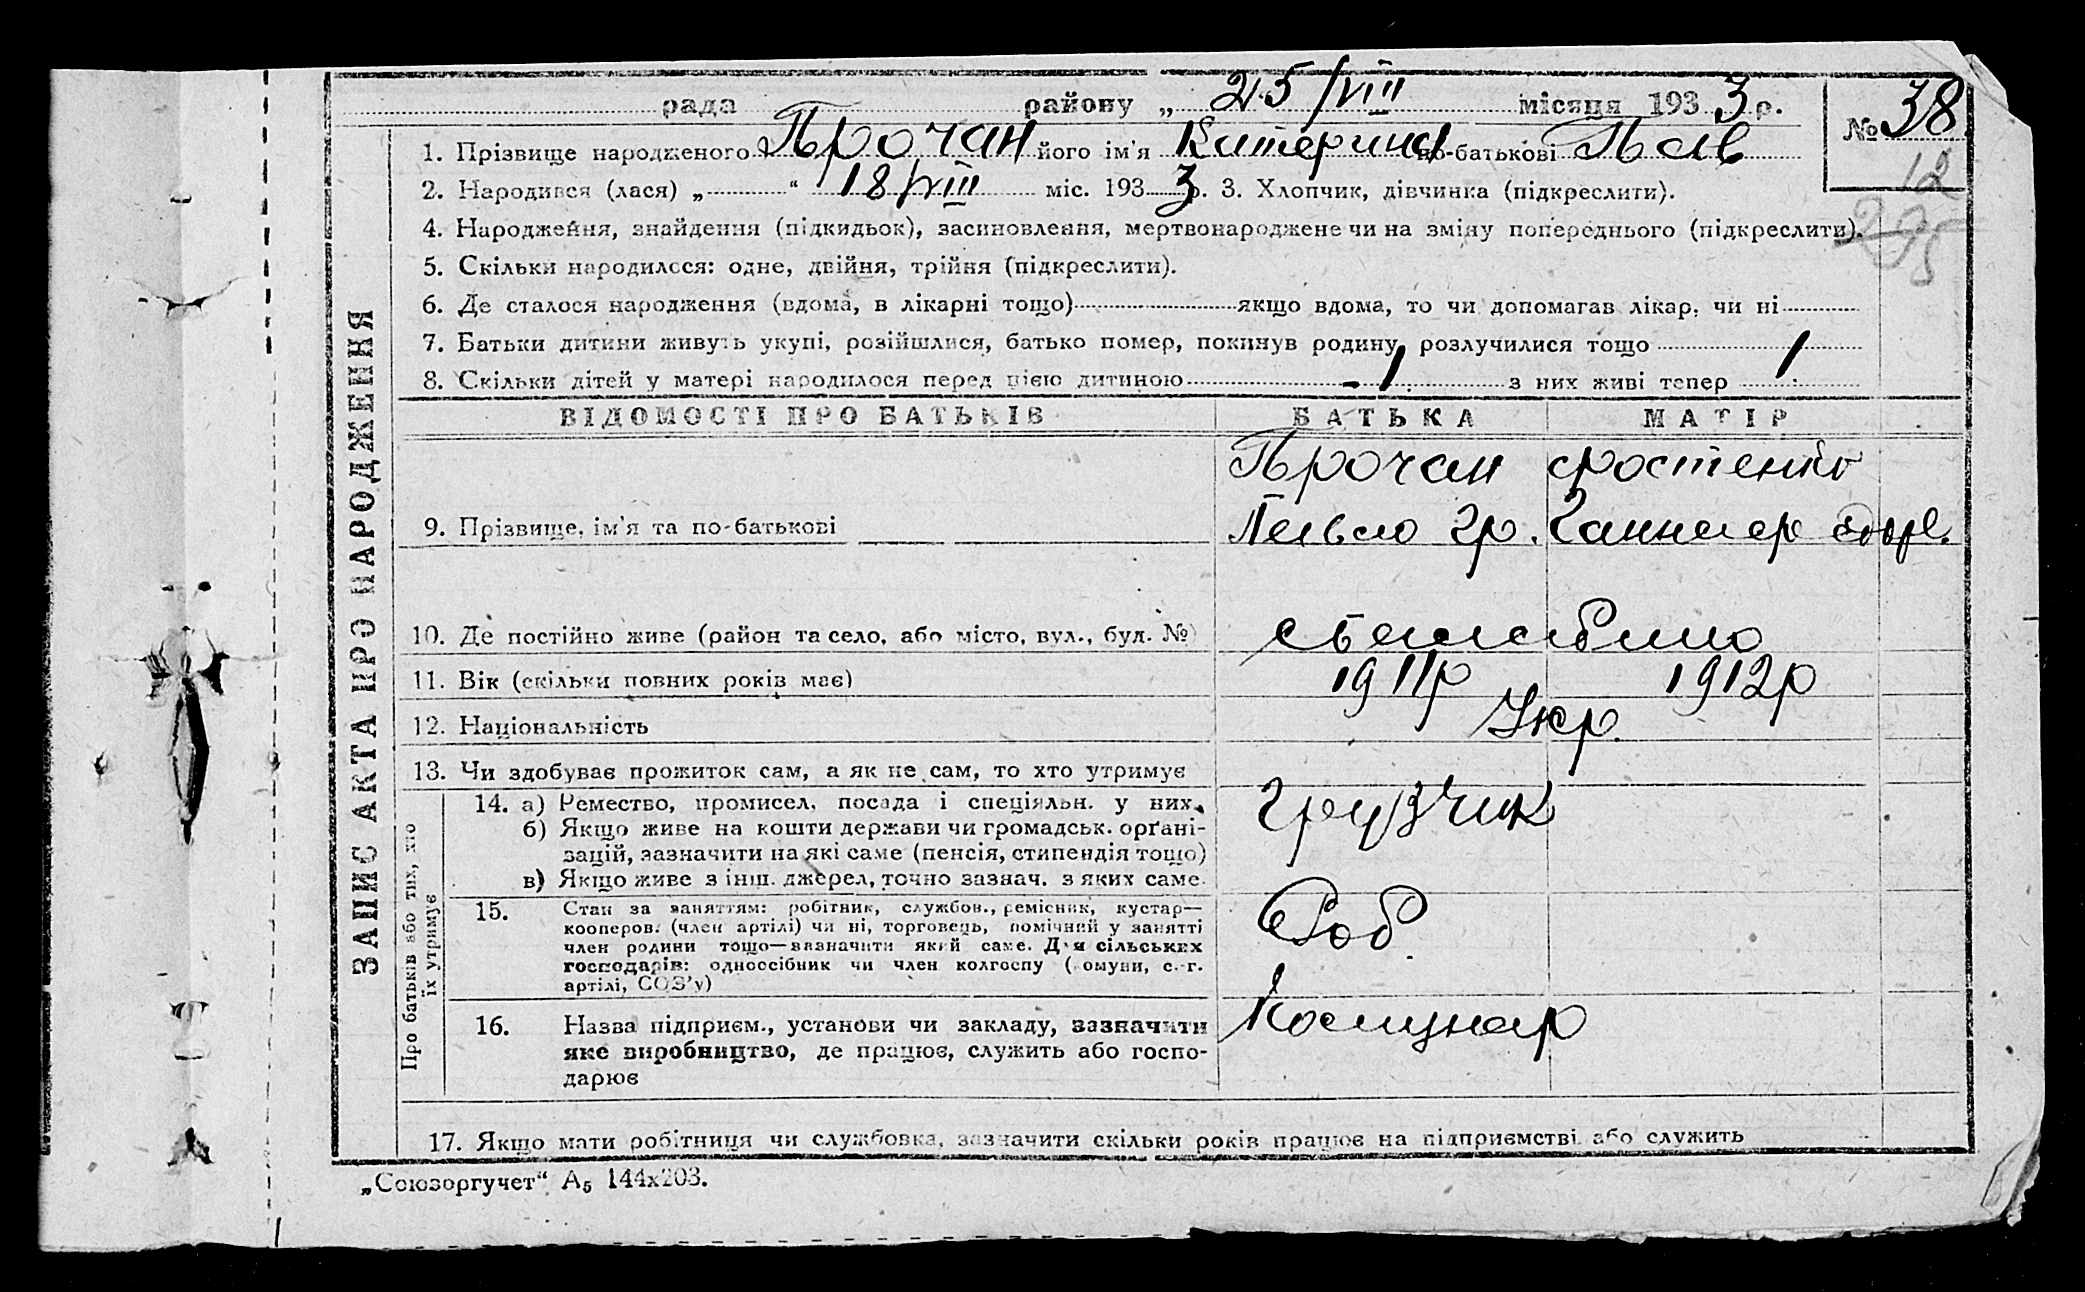 рада району „ 25/VIII місяця 1933 р.
№ 38
1. Прізвище народженого Прочан його ім'я Катерина по-батькові Пав
12
295
2. Народився (лася) „ “ 18/VIII міс. 1933 р. 3. Хлопчик, дівчинка (підкреслити).
4. Народження, знайдення (підкидьок), засиновлення, мертвонароджене чи на зміну попереднього (підкреслити).
5. Скільки народилося: одне, двійня, трійня (підкреслити).
6. Де сталося народження (вдома, в лікарні тощо) якщо вдома, то чи допомагав лікар, чи ні
7. Батьки дитини живуть укупі, розійшлися, батько помер, покинув родину, розлучилися тощо
8. Скільки дітей у матері народилося перед цією дитиною 1 з них живі тепер 1
ЗАПИС АКТА ПРО НАРОДЖЕННЯ
ВІДОМОСТІ ПРО БАТЬКІВ БАТЬКА МАТІР
Прочан
9. Прізвище, ім'я та по-батькові Павло Гр. Ганна
10. Де постійно живе (район та село, або місто, вул., буд. №)
11. Вік (скільки повних років має) 1911р 1912р
12. Національність Укр.
13. Чи здобуває прожиток сам, а як не сам, то хто утримує
Про батьків або тих, хто їх утримує
14. а) Ремество, промисел, посада і спеціяльн. у них. грузчик
б) Якщо живе на кошти держави чи громадськ. орґані-
зацій, зазначити на які саме (пенсія, стипендія тощо)
в) Якщо живе з інш. джерел, точно зазнач. з яких саме.
15. Стан за заняттям: робітник, службов., ремісник, кустар—
кооперов. (член артілі) чи ні, торговець, помічний у занятті
член родини тощо—визначити який саме. Для сільських
господарів: одноосібник чи член колгоспу (комуни, с.-г.
артілі, СОЗ'у)
Роб
16. Назва підприєм., установи чи закладу, зазначити
яке виробництво, де працює, служить або госпо-
дарює
Комунар
17. Якщо мати робітниця чи службовка, зазначити скільки років працює на підприємстві або служить
„Союзоргучет“ А5 144x203.